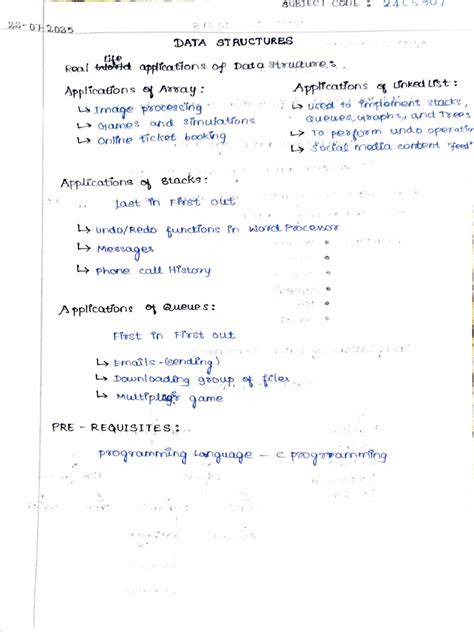 SUBJECT CODE : 24CS307
22-07-2025
DATA STRUCTURES
Real life applications of Data structures.
Applications of Array:
↳ Image processing
↳ Games and simulations
↳ Online ticket booking
Applications of Linked List:
↳ Used to implement stacks,
Queues, Graphs, and Trees
↳ To perform undo operation
↳ Social media content "feed"
Applications of Stacks:
Last in First out
↳ Undo/Redo functions in Word Processor
↳ Messages
↳ Phone call History
Applications of Queues:
First in First out
↳ Emails - (sending)
↳ Downloading group of files
↳ Multiplayer game
PRE - REQUISITES:
programming language - C programming